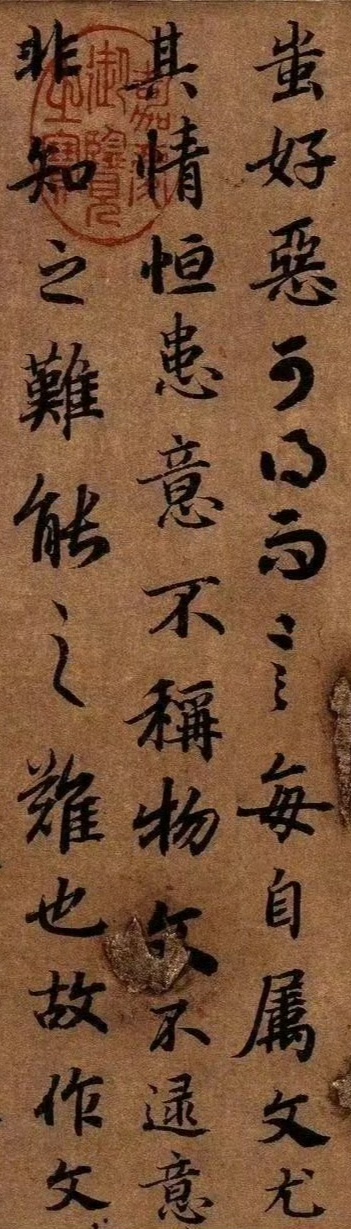 蚩好惡可得而言每自屬文尤
其情恒患意不稱物文不逮意
非知之難能之難也故作文
嘉慶御覽之寶